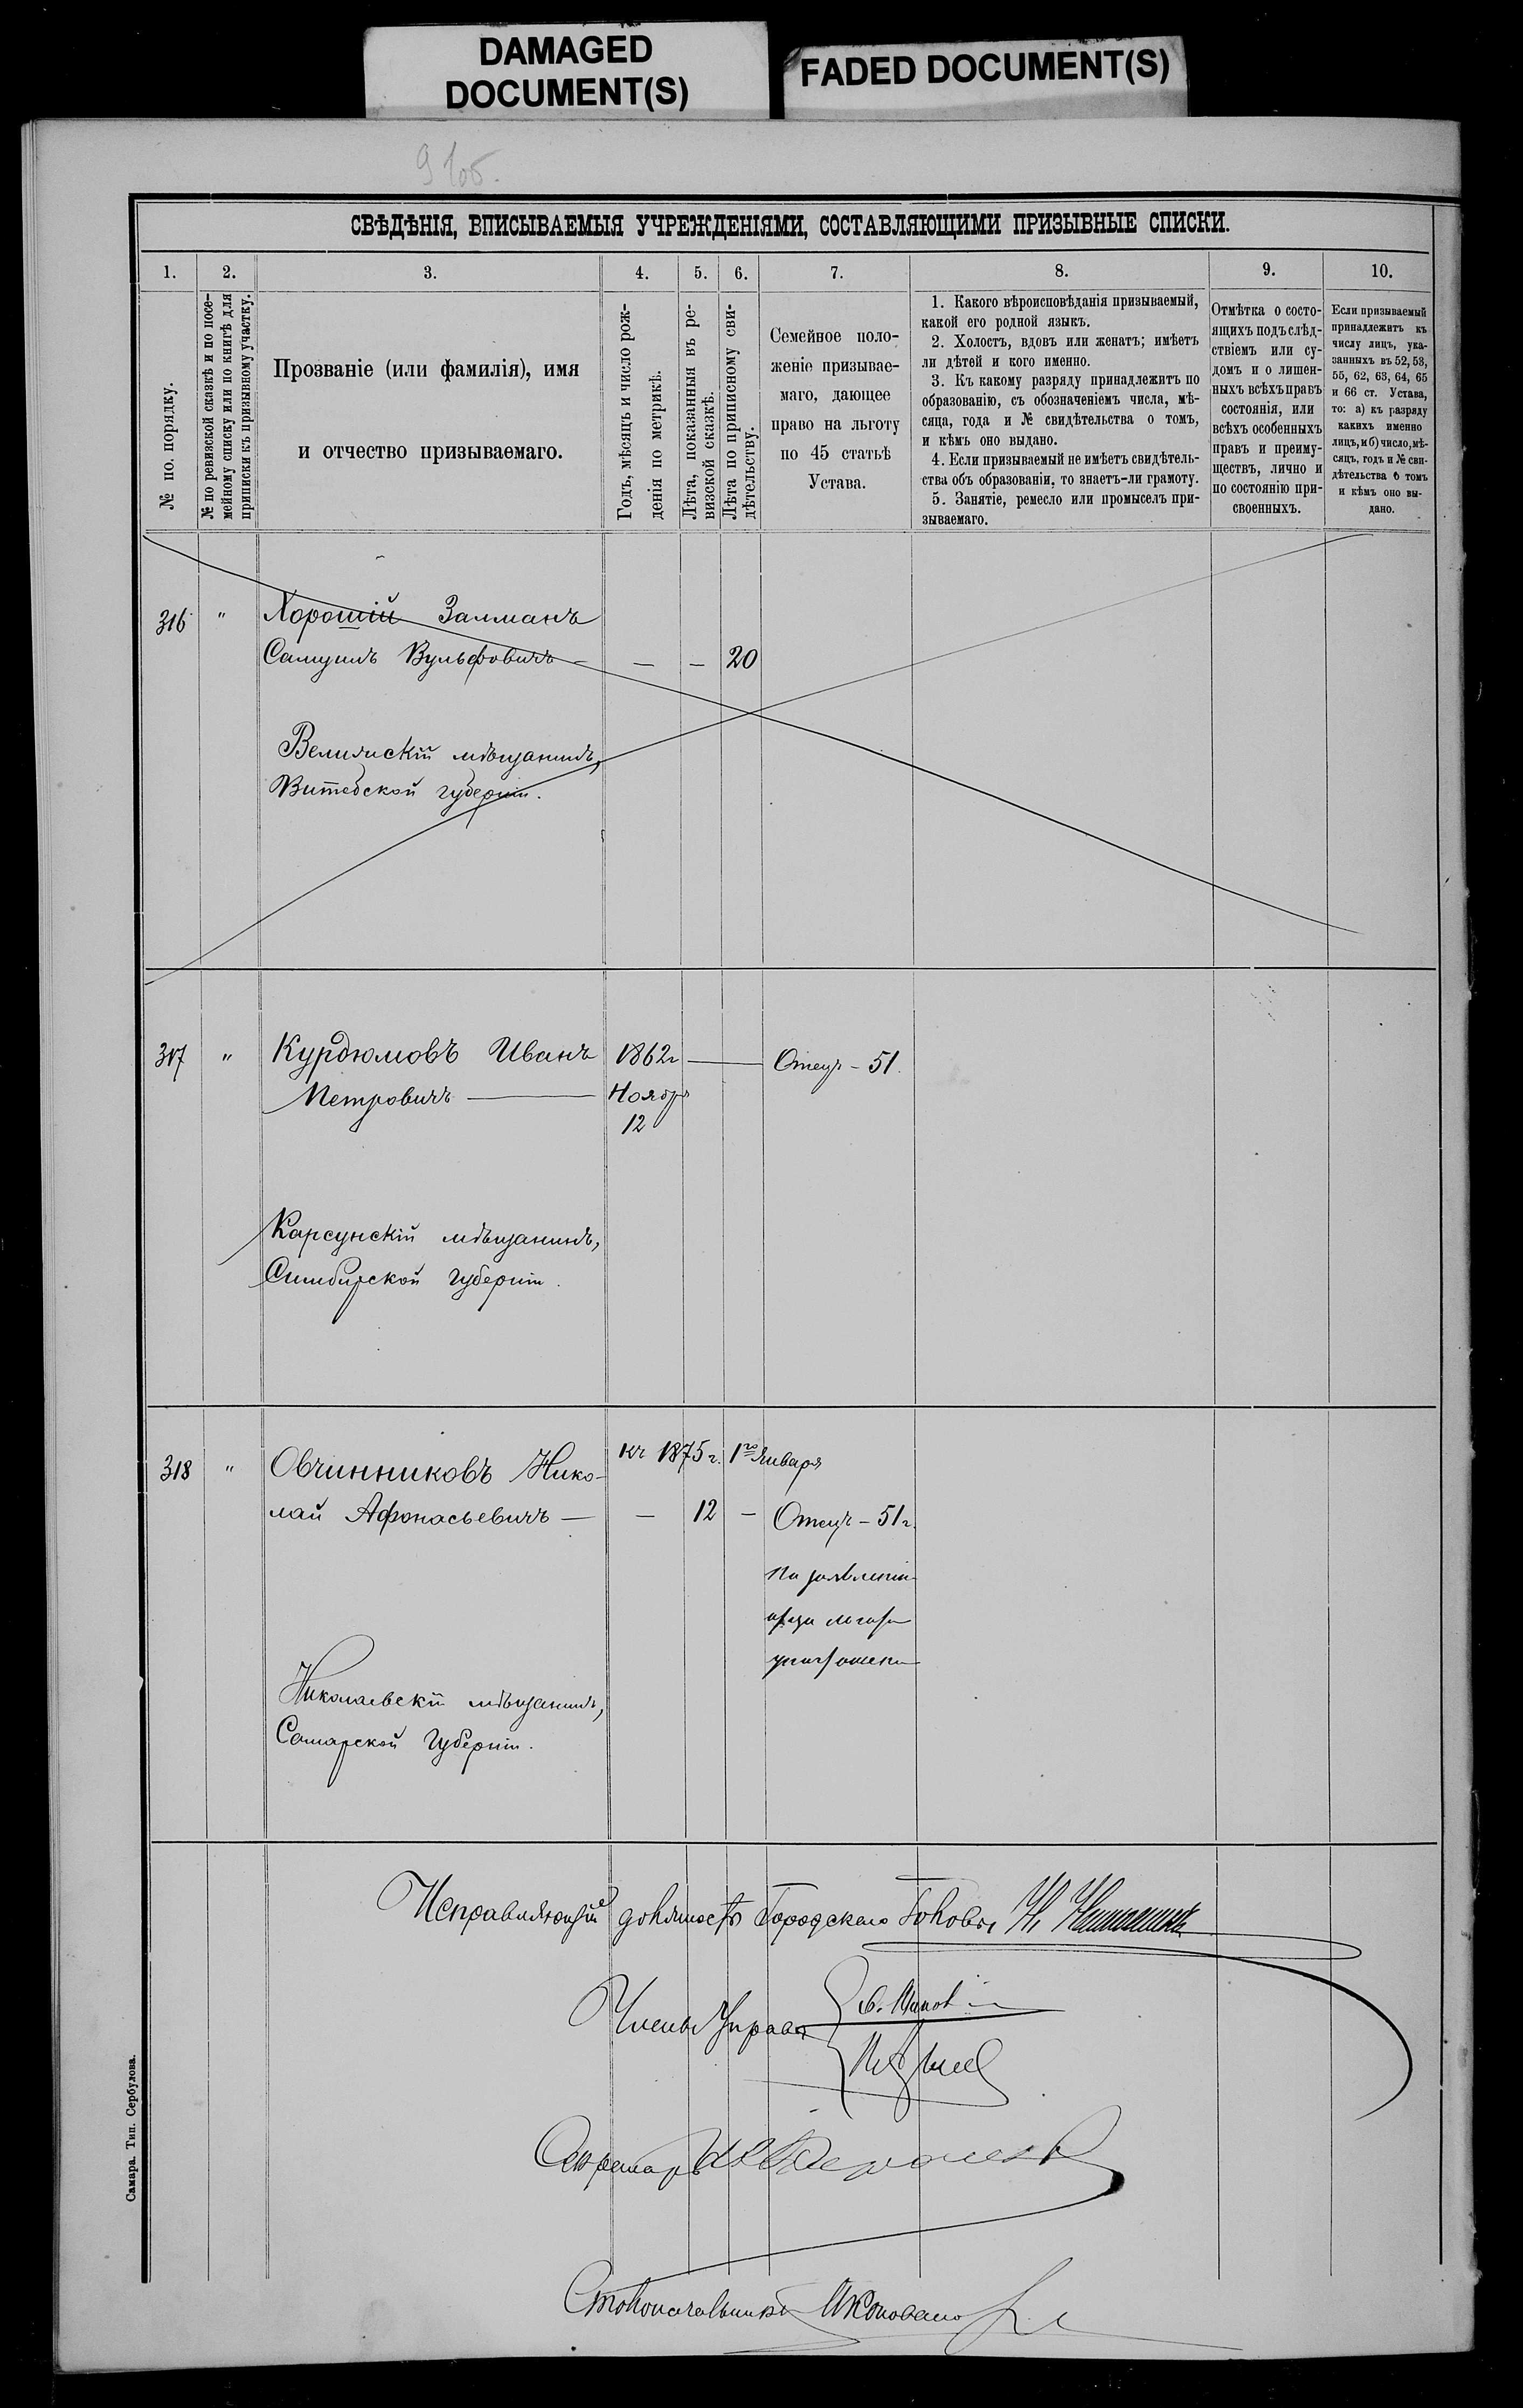 DAMAGED
DOCUMENT(S)
FADED DOCUMENT(S)
СВѢДѢНІЯ, ВПИСЫВАЕМЫЯ УЧРЕЖДЕНІЯМИ, СОСТАВЛЯЮЩИМИ ПРИЗЫВНЫЕ СПИСКИ.
1. 2. 3. 4. 5. 6. 7. 8. 9. 10.
№ по. порядку.
№ по ревизской сказкѣ и по посе-
мейному списку или по книгѣ для
приписки къ призывному участку.
Прозваніе (или фамилія), имя
и отчество призываемаго.
Годъ, мѣсяцъ и число рож-
денія по метрикѣ.
Лѣта, показанныя въ ре-
визской сказкѣ.
Лѣта по приписному сви-
дѣтельству.
Семейное поло-
женіе призывае-
маго, дающее
право на льготу
по 45 статьѣ
Устава.
1. Какого вѣроисповѣданія призываемый,
какой его родной языкъ.
2. Холостъ, вдовъ или женатъ; имѣетъ
ли дѣтей и кого именно.
3. Къ какому разряду принадлежитъ по
образованію, съ обозначеніемъ числа, мѣ-
сяца, года и № свидѣтельства о томъ,
и кѣмъ оно выдано.
4. Если призываемый не имѣетъ свидѣтель-
ства объ образованіи, то знаетъ-ли грамоту.
5. Занятіе, ремесло или промыселъ при-
зываемаго.
Отмѣтка о состо-
ящихъ подъ слѣд-
ствіемъ или су-
домъ и о лишен-
ныхъ всѣхъ правъ
состоянія, или
всѣхъ особенныхъ
правъ и преиму-
ществъ, лично и
по состоянію при-
своенныхъ.
Если призываемый
принадлежитъ къ
числу лицъ, ука-
занныхъ въ 52, 53,
55, 62, 63, 64, 65
и 66 ст. Устава,
то: а) къ разряду
какихъ именно
лицъ, и б) число, мѣ-
сяцъ, годъ и № сви-
дѣтельства о томъ
и кѣмъ оно вы-
дано.
316 " Хорошій Залманъ
Самуилъ Вульфовичъ — — — 20
Велижскій мѣщанинъ,
Витебской губерніи.
317 " Курдюмовъ Иванъ 1862 г — Отецъ - 51.
Петровичъ — Ноября
12
Карсунскій мѣщанинъ,
Симбирской губерніи.
318 " Овчинниковъ Нико- къ 1875 г. 1го Января
лай Афонасьевичъ — — 12 — Отецъ - 51 г.
По заявленію
Николаевскій мѣщанинъ,
Самарской Губерніи.
Исправляющій должность Городскаго Головы Н.
Члены Управы
Секретарь
Столоначальникъ
Самара. Тип. Сербулова.